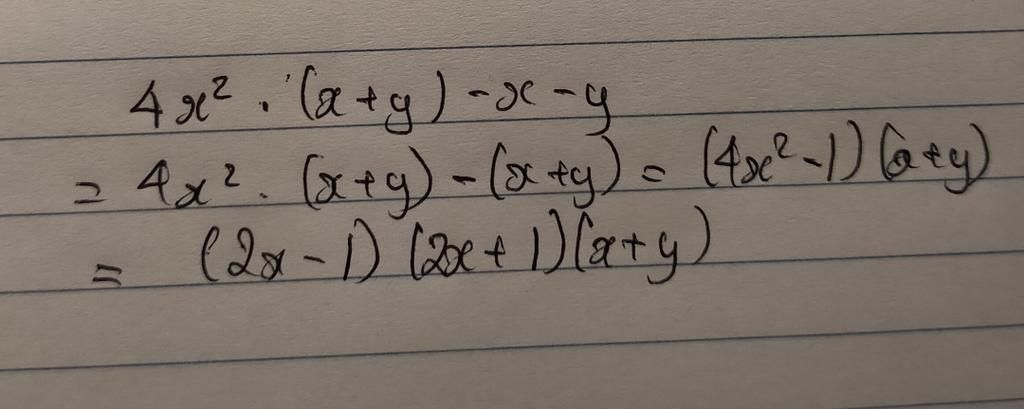 4x² · (x+y) - x - y
= 4x² · (x+y) - (x+y) = (4x² - 1)(x+y)
= (2x - 1)(2x + 1)(x+y)